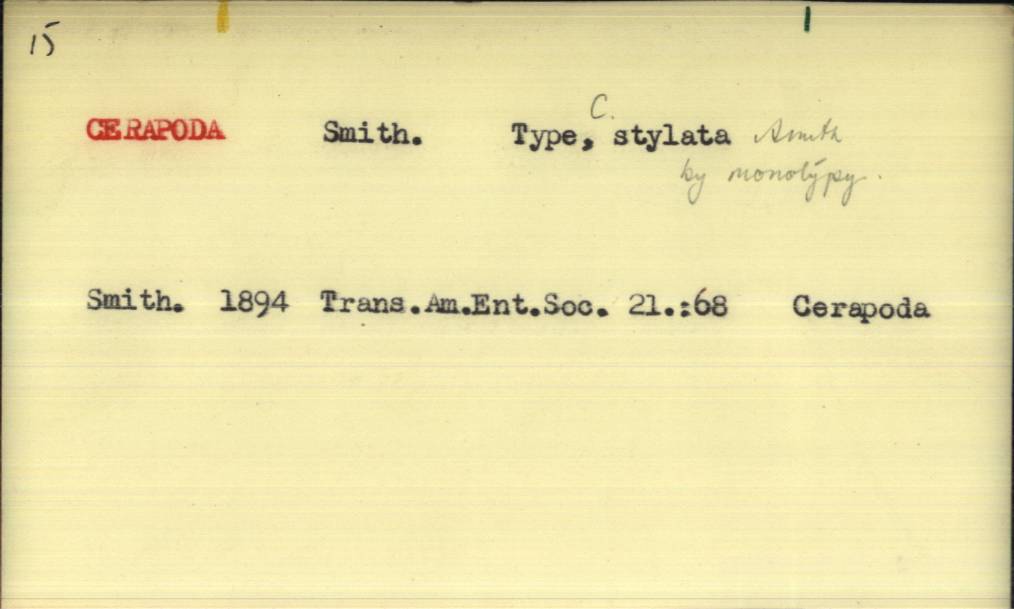 15
CERAPODA Smith. Type, C. stylata Smith
by monotypy.
Smith. 1894 Trans.Am.Ent.Soc. 21.:68 Cerapoda